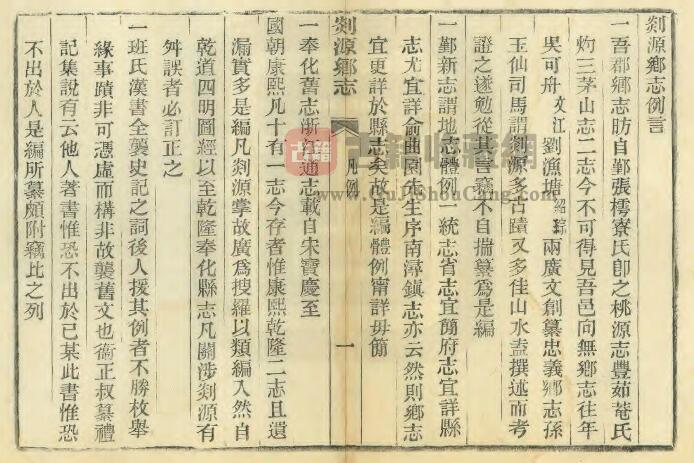 剡源鄉志例言
一吾郡鄉志昉自鄞張樗寮氏卽之桃源志豐茹菴氏
灼三茅山志二志今不可得見吾邑向無鄉志往年
吳可舟文江劉漁塘紹琮兩廣文創纂忠義鄉志孫
玉仙司馬謂剡源多古蹟又多佳山水盍撰述而考
證之遂勉從其言竊不自揣纂爲是編
一鄞新志謂地志體例一統志省志宜簡府志宜詳縣
志尤宜詳俞曲園先生序南潯鎮志亦云然則鄉志
宜更詳於縣志矣故是編體例甯詳毋簡
剡源鄉志
凡例
一
一奉化舊志浙江通志載自宋寶慶至
國朝康熙凡十有一志今存者惟康熙乾隆二志且遺
漏實多是編凡剡源掌故廣爲搜羅以類編入然自
乾道四明圖經以至乾隆奉化縣志凡關涉剡源有
舛誤者必訂正之
一班氏漢書全襲史記之詞後人援其例者不勝枚舉
緣事蹟非可憑虛而構非故襲舊文也衞正叔纂禮
記集說有云他人著書惟恐不出於已某此書惟恐
不出於人是編所纂頗附竊比之列
古籍
www.GuJiShouCang.com